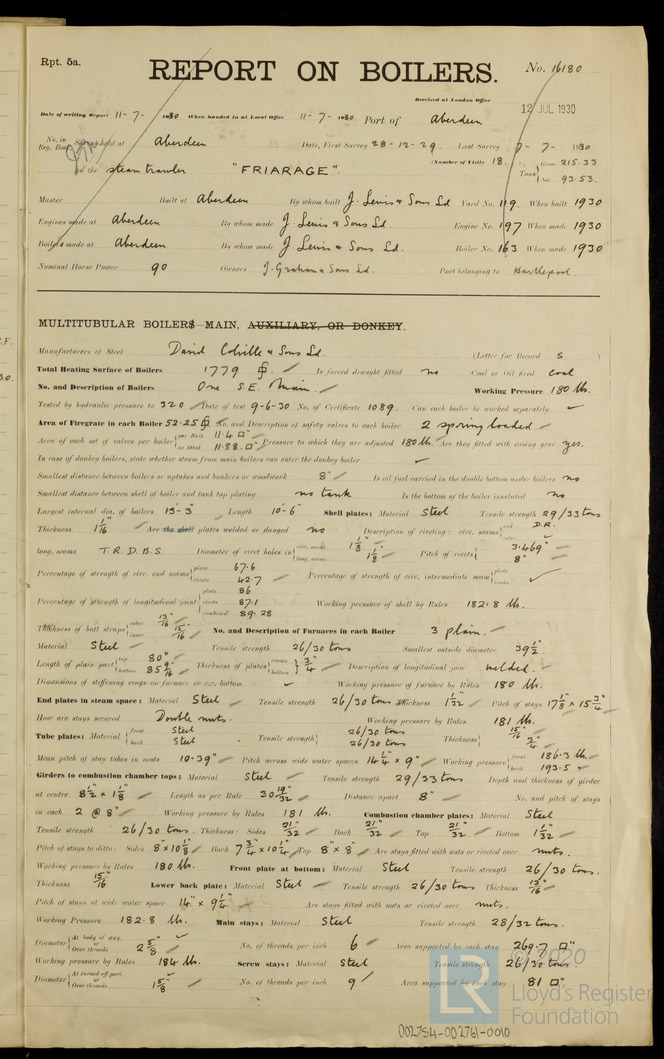 Rpt. 5a.
REPORT ON BOILERS.
No. 16180
Received at London Office
12 JUL 1930
Date of writing Report 11-7-1930 When handed in at Local Office 11-7-1930 Port of Aberdeen
No. in Reg. Book. Survey held at Aberdeen Date, First Survey 28-12-29. Last Survey 7-7-1930
(Number of Visits 18.
on the steam trawler "FRIARAGE". Tons Gross 215.33 Net 93.53.
Master Built at Aberdeen By whom built J. Lewis & Sons Ld Yard No. 119. When built 1930
Engines made at Aberdeen By whom made J. Lewis & Sons Ld. Engine No. 197 When made 1930
Boilers made at Aberdeen By whom made J. Lewis & Sons Ld. Boiler No. 163 When made 1930
Nominal Horse Power 90 Owners J. Graham & Sons Ld. Port belonging to Hartlepool.
MULTITUBULAR BOILERS MAIN, AUXILIARY, OR DONKEY.
Manufacturers of Steel David Colville & Sons Ld. (Letter for Record S )
Total Heating Surface of Boilers 1779 Is forced draught fitted no Coal or Oil fired coal
No. and Description of Boilers One S.E. Main. Working Pressure 180 lbs.
Tested by hydraulic pressure to 320 Date of test 9-6-30 No. of Certificate 1089. Can each boiler be worked separately ✓
Area of Firegrate in each Boiler 52.25 No. and Description of safety valves to each boiler 2 spring loaded.
Area of each set of valves per boiler per Rule 11.4 □" as fitted 11.88 □" Pressure to which they are adjusted 180 lbs. Are they fitted with easing gear yes.
In case of donkey boilers, state whether steam from main boilers can enter the donkey boiler ✓
Smallest distance between boilers or uptakes and bunkers or woodwork 8" Is oil fuel carried in the double bottom under boilers no
Smallest distance between shell of boiler and tank top plating no tank Is the bottom of the boiler insulated no
Largest internal dia. of boilers 13'-3" Length 10'-6" Shell plates: Material Steel Tensile strength 29/33 tons
Thickness 1 1/16" Are the shell plates welded or flanged no Description of riveting: circ. seams end D.R.
long. seams T.R.D.B.S. Diameter of rivet holes in circ. seams 1 1/8" long. seams 1 1/8" Pitch of rivets 3.469" 8"
Percentage of strength of circ. end seams plate 67.6 rivets 42.7 Percentage of strength of circ. intermediate seam plate rivets ✓
Percentage of strength of longitudinal joint plate 86 rivets 87.1 combined 89.28 Working pressure of shell by Rules 182.8 lbs.
Thickness of butt straps outer 13/16" inner 15/16" No. and Description of Furnaces in each Boiler 3 plain.
Material Steel Tensile strength 26/30 tons Smallest outside diameter 39 1/2
Length of plain part top 80" bottom 85 9/16" Thickness of plates crown bottom 3/4" Description of longitudinal joint welded.
Dimensions of stiffening rings on furnace or c.c. bottom ✓ Working pressure of furnace by Rules 180 lbs.
End plates in steam space: Material Steel Tensile strength 26/30 tons Thickness 1 1/32" Pitch of stays 17 1/8" x 15 3/4"
How are stays secured Double nuts. Working pressure by Rules 181 lbs.
Tube plates: Material front Steel back Steel Tensile strength 26/30 tons 26/30 tons Thickness 15/16" 3/4"
Mean pitch of stay tubes in nests 10.39" Pitch across wide water spaces 14 1/4" x 9" Working pressure front 186.3 lbs. back 193.5
Girders to combustion chamber tops: Material Steel Tensile strength 29/33 tons Depth and thickness of girder
at centre 8 1/2" x 1 1/8" Length as per Rule 30 19/32" Distance apart 8" No. and pitch of stays
in each 2 @ 8" Working pressure by Rules 181 lbs. Combustion chamber plates: Material Steel
Tensile strength 26/30 tons. Thickness: Sides 21/32" Back 21/32" Top 21/32" Bottom 1 1/32"
Pitch of stays to ditto: Sides 8" x 10 1/8" Back 7 3/4" x 10 1/4" Top 8" x 8" Are stays fitted with nuts or riveted over nuts.
Working pressure by Rules 180 lbs. Front plate at bottom: Material Steel Tensile strength 26/30 tons.
Thickness 15/16" Lower back plate: Material Steel Tensile strength 26/30 tons Thickness 13/16"
Pitch of stays at wide water space 14" x 9 1/4" Are stays fitted with nuts or riveted over nuts.
Working Pressure 182.8 lbs. Main stays: Material Steel Tensile strength 28/32 tons.
Diameter At body of stay, or Over threads. 2 5/8" No. of threads per inch 6 Area supported by each stay 269.7 □"
Working pressure by Rules 184 lbs. Screw stays: Material Steel Tensile strength 26/30 tons
Diameter At turned off part, or Over threads. 1 5/8" No. of threads per inch 9 Area supported by each stay 81 □"
© 2020
LR
Lloyd's Register
Foundation
002754-002761-0010